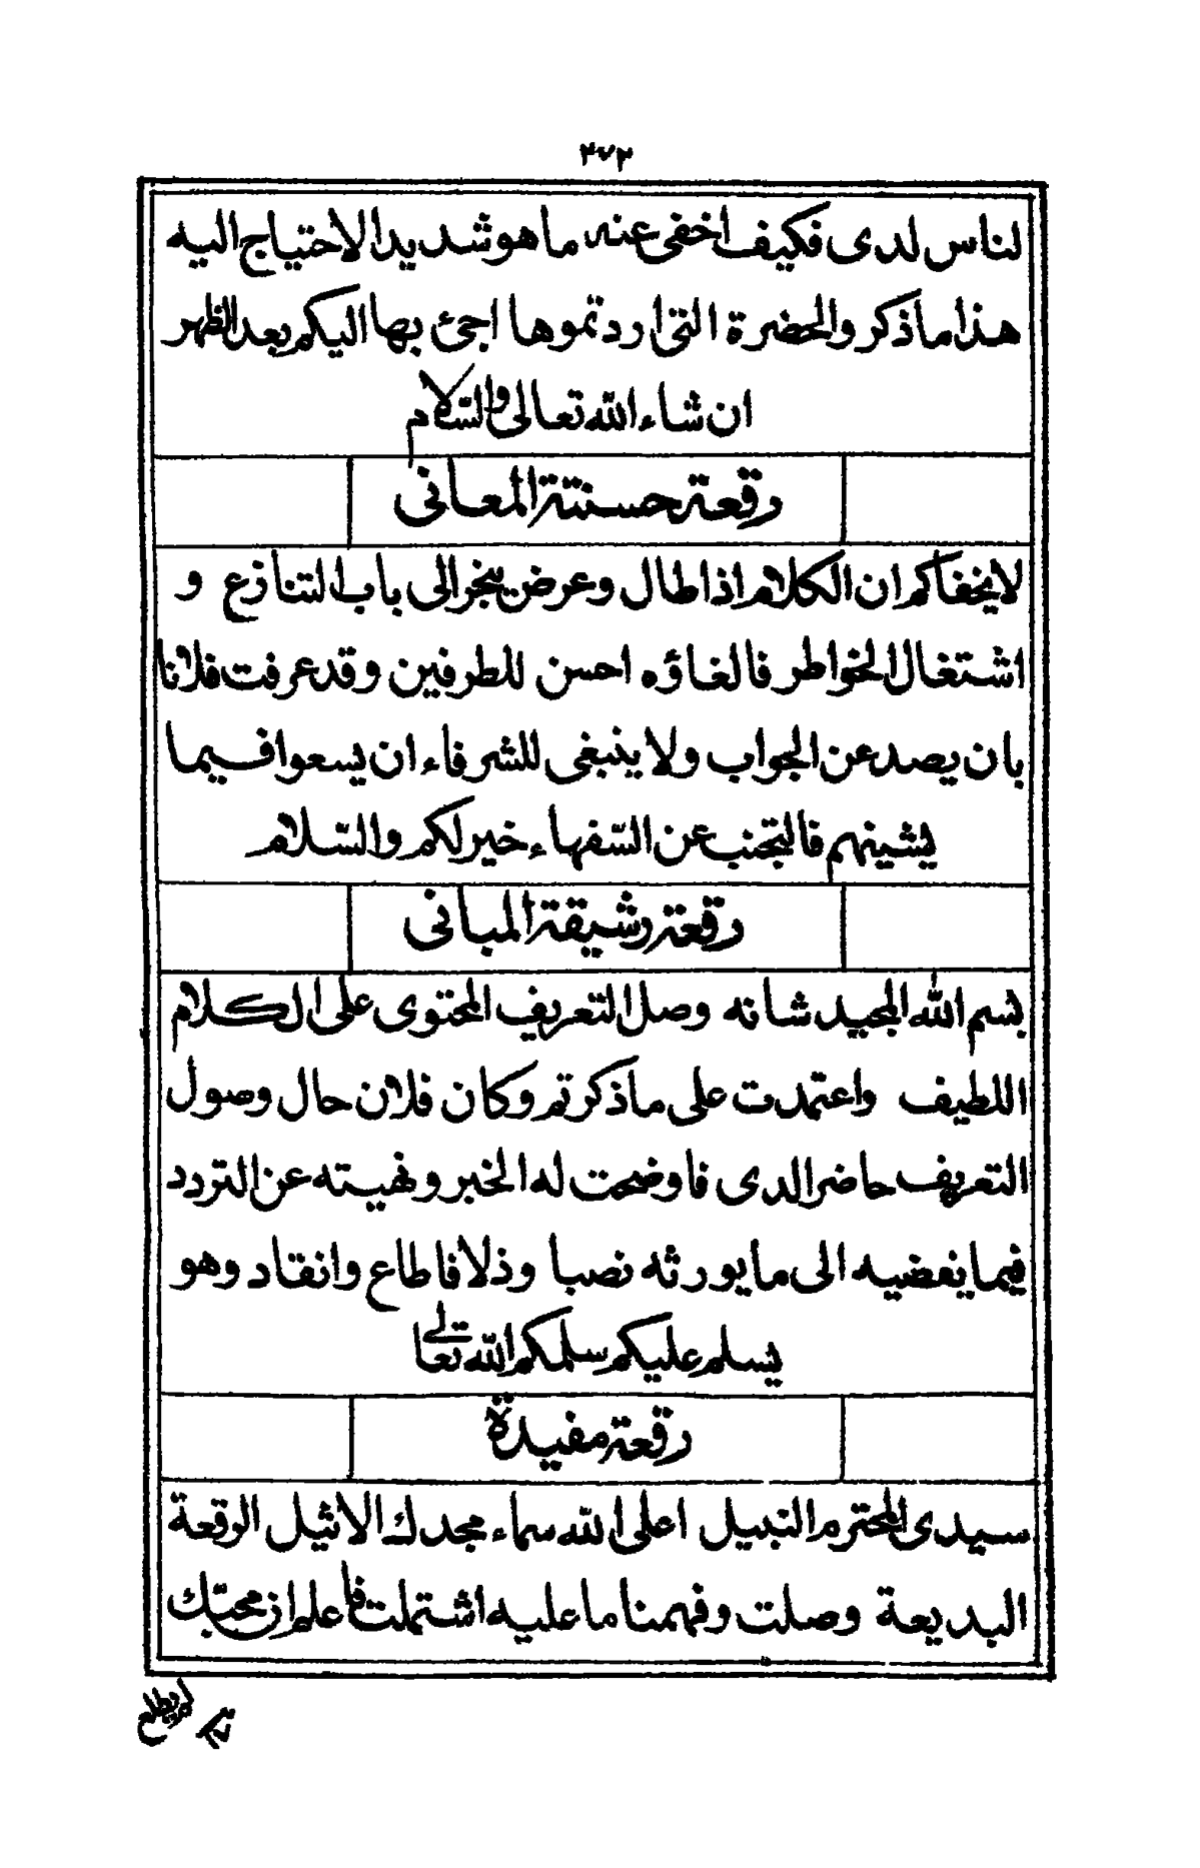 ٣٧٣
لناس لدى فكيف اخفى عنه ما هو شديد الاحتياج اليه
هذا ما ذكر والحضرة التى اردتموها اجئ بها اليكم بعد الظهر
ان شاء الله تعالى والسّلام
رقعة حسنة المعانى
لا يخفاكم ان الكلام اذا طال وعرض ينجر الى باب التنازع و
اشتغال الخواطر فالغاؤه احسن للطرفين وقد عرفت فلانا
بان يصد عن الجواب ولا ينبغى للشرفاء ان يسعوا فيما
يشينهم فالتجنب عن السّفهاء خير لكم والسّلام
رقعة رشيقة المبانى
بسم الله المجيد شانه وصل التعريف المحتوى على الكلام
اللطيف واعتمدت على ما ذكرتم وكان فلان حال وصول
التعريف حاضرا لدى فاوضحت له الخبر ونهيته عن التردد
فيما يفضيه الى ما يورثه نصبا وذلا فاطاع وانقاد وهو
يسلم عليكم سلمكم الله تعالى
رقعة مفيدة
سيدى المحترم النبيل اعلى الله سماء مجدك الاثيل الرقعة
البديعة وصلت وفهمنا ما عليه اشتملت فاعلم ان محبّك
لم يطلع